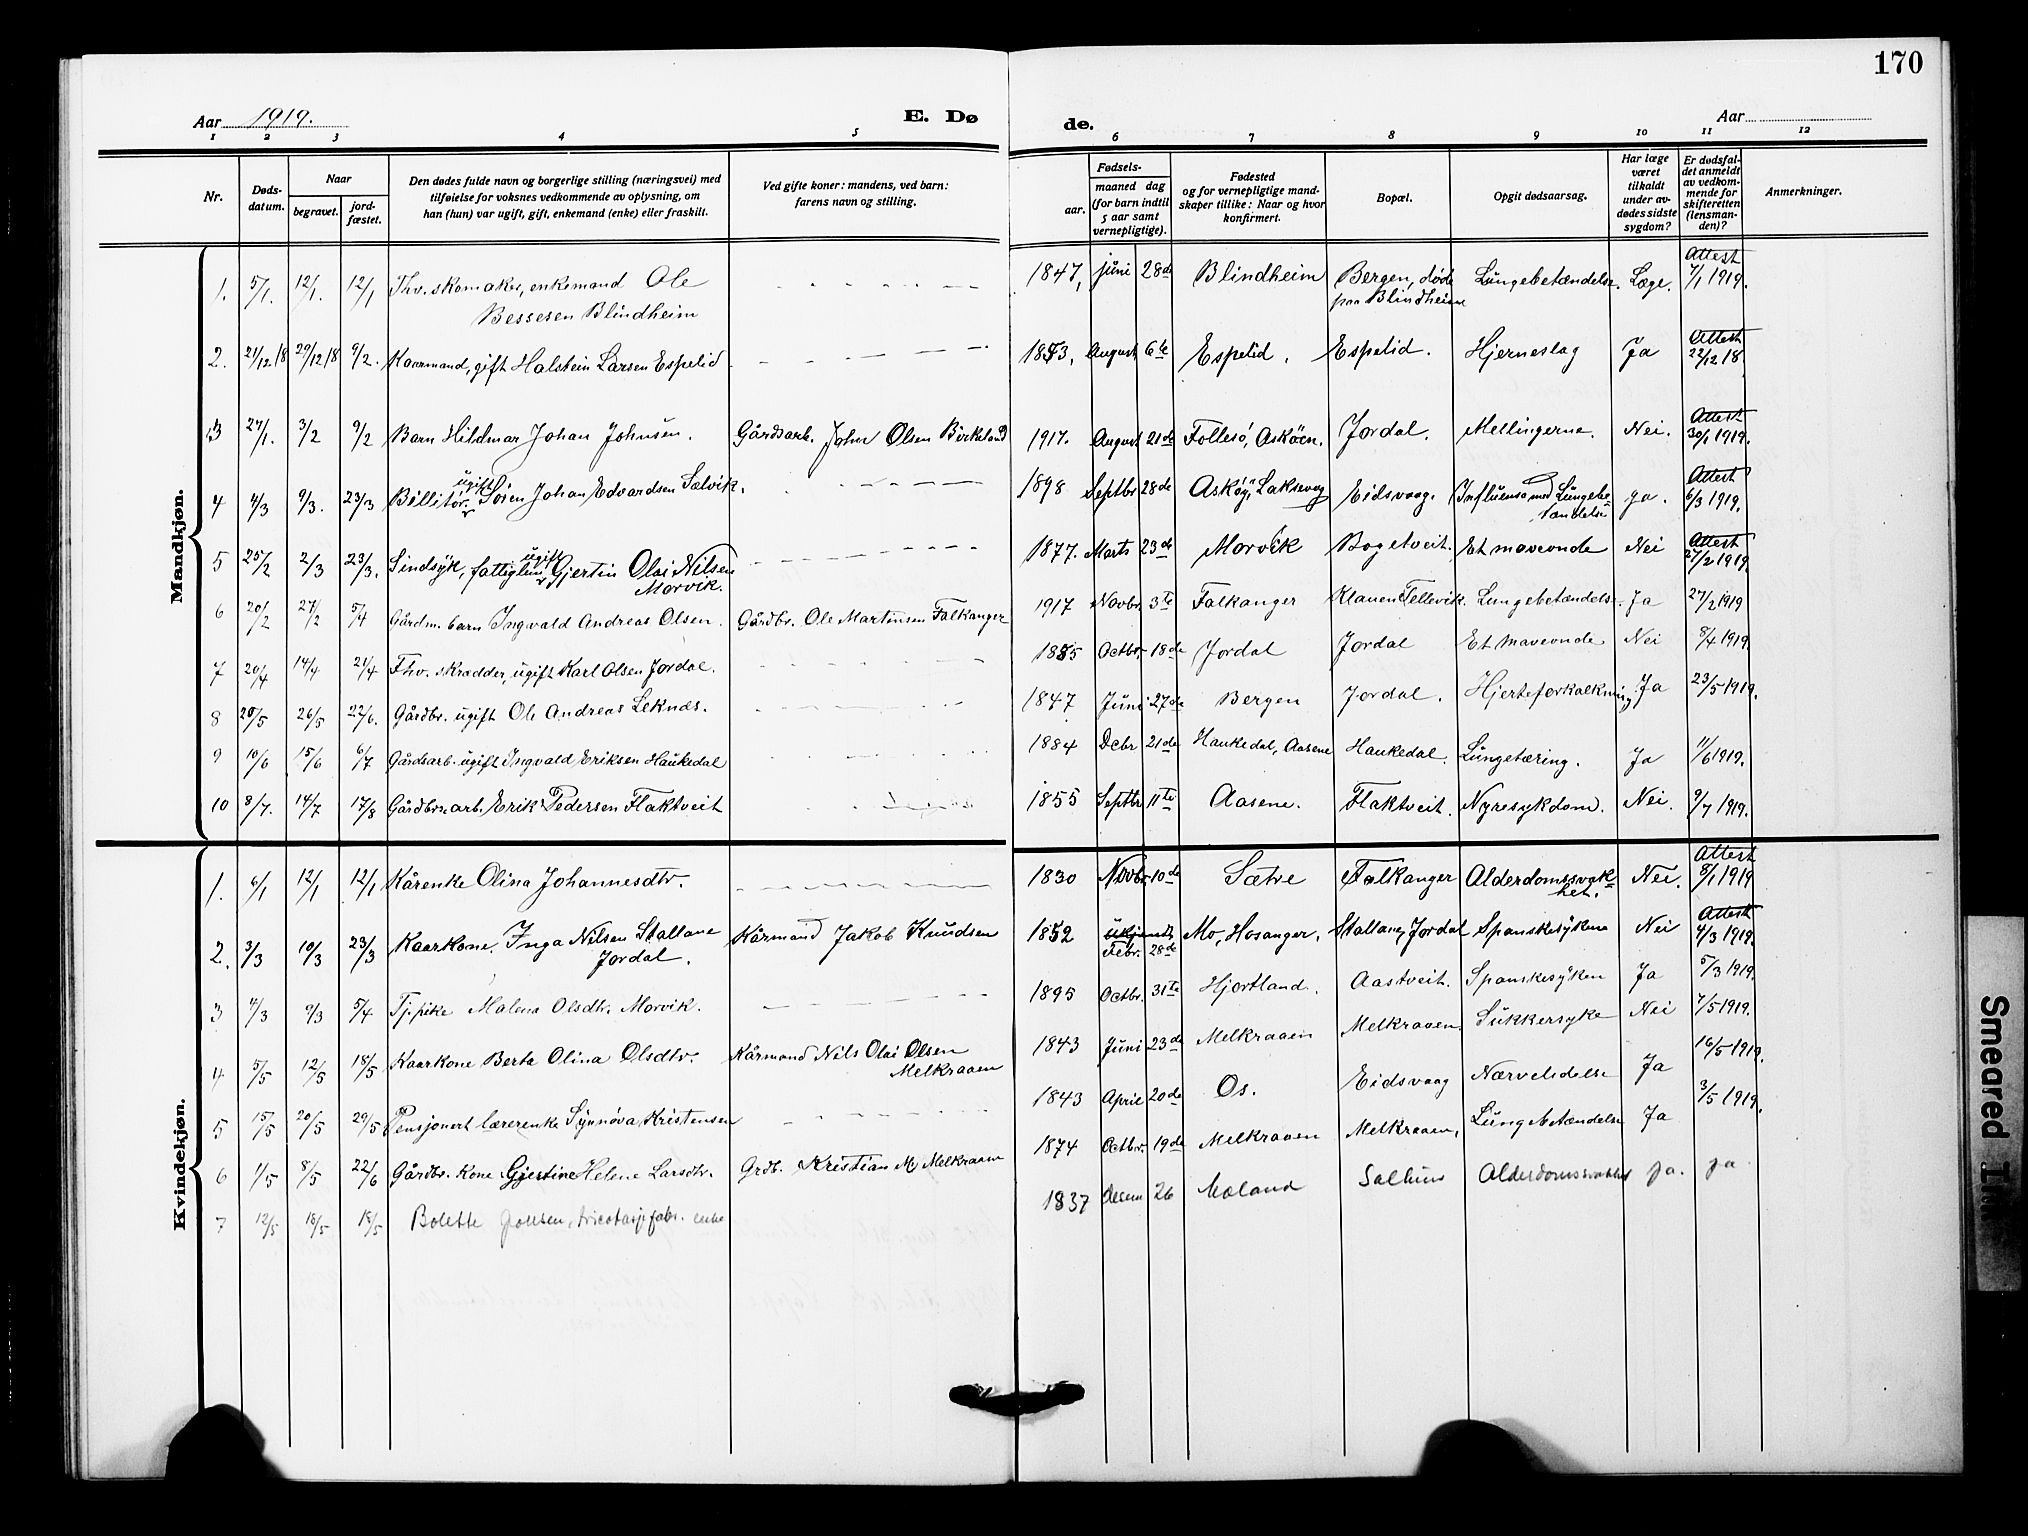 170
Aar 1919.
E. Dø
de.
Aar
1 2 3 4 5
6 7 8 9 10 11 12
Nr.
Døds-
datum.
Naar
begravet.
jord-
fæstet.
Den dødes fulde navn og borgerlige stilling (næringsvei) med
tilføielse for voksnes vedkommende av oplysning, om
han (hun) var ugift, gift, enkemand (enke) eller fraskilt.
Ved gifte koner: mandens, ved barn:
farens navn og stilling.
Fødsels-
aar.
maaned dag
(for barn indtil
5 aar samt
vernepligtige).
Fødested
og for vernepligtige mand-
skaper tillike: Naar og hvor
konfirmert.
Bopæl.
Opgit dødsaarsag.
Har læge
været
tilkaldt
under av-
dødes sidste
sygdom?
Er dødsfal-
det anmeldt
av vedkom-
mende for
skifteretten
(lensman-
den)?
Anmerkninger.
Mandkjøn.
1. 5/1. 12/1. 12/1 Fhv. skomaker, enkemand Ole
Bessesen Blindheim
1847, juni 28de Blindheim Bergen, døde
paa Blindheim
Lungebetændelse. Læge. Attest
7/1 1919.
2. 21/12 18 29/12 18 9/2. Kaarmand, gift Halstein Larsen Espelid
1853, August 6te Espelid. Espelid. Hjerneslag Ja Attest
22/12 18.
3 27/1. 3/2 9/2 Barn Hildmar Johan Johnsen. Gårdsarb. John Olsen Birkeland
1917. August 21de Follesö, Asköen. Jordal. Mellingerne. Nei. Attest
30/1 1919.
4 4/3 9/3. 23/3 Billitör. ugift Sören Johan Edvardsen Sælvik.
1898 Septbr 28de Askøy, Laksevaag Eidsvaag. Influensa med Lungebe-
tændelse
ja. Attest
6/3 1919.
5 25/2 2/3 23/3. Sindsyk, fattiglem ugift Gjertin Olai Nilsen
Morvik.
1877. Marts 23de Morvik Bogetveit. Et maveonde Nei Attest
27/2 1919.
6 20/2 27/2 5/4 Gårdm. barn Ingvald Andreas Olsen. Gårdbr. Ole Martinsen Falkanger
1917 Novbr. 3te Falkanger Klauen Tellevik. Lungebetændelse. Ja 27/2 1919
7 20/4 14/4 21/4 Fhv. skrædder, ugift Karl Olsen Jordal.
1855 Octbr. 18de Jordal Jordal Et maveonde Nei 8/4 1919.
8 20/5 26/5 22/6. Gårdbr. ugift Ole Andreas Leknes.
1847 Juni 27de Bergen Jordal. Hjerteforkalkning Ja 23/5 1919.
9 10/6 15/6 6/7 Gårdsarb. ugift Ingvald Eriksen Haukedal
1884 Dcbr 21de Haukedal, Aasene Haukedal. Lungetæring. Ja 11/6 1919.
10 8/7. 14/7 17/8 Gårdbr. arb. Erik Pedersen Flaktveit
1855 Septbr 11te Aasene. Flaktveit. Nyresykdom. Nei. 9/7 1919.
Kvindekjøn.
1. 6/1 12/1 12/1 Kårenke Olina Johannesdtr.
1830 Novbr. 10de Sætre Falkanger Alderdomssvak-
het.
Nei. Attest
8/1 1919
2. 3/3 10/3 23/3 Kaarkone. Inga Nilsen Stallane
Jordal.
Kårmand Jakob Knudsen
1852 ukjendt
Febr. 28de
Mo, Hosanger. Stallane, Jordal Spanskesyken Nei Attest
4/3 1919.
3 4/3 9/3 5/4 Tj. pike Malena Olsdtr. Morvik.
1895 Octbr. 31te Hjortland. Aastveit. Spanskesyken Ja 5/3 1919.
4 5/5 12/5 18/5 Kaarkone Berta Olina Olsdtr. Kårmand Nils Olai Olsen
Melkraaen
1843 Juni 23de Melkraaen Melkraaen. Sukkersyke Nei 7/5 1919.
5 15/5 20/5 29/5 Pensjonert lærerenke Synnöva Kristensen
1843 April 20de Os. Eidsvaag Nærvelidelse Ja 16/5 1919.
6 1/5 8/5 22/6 Gårdbr. kone Gjertine Helene Larsdtr. Grdb. Kristian M. Melkraaen
1874 Octbr. 19de Melkraaen Melkraaen, Lungebetændelse Ja 3/5 1919.
7 12/5 18/5 18/5 Bolette , tricotasjefabr. enke
1837 Desem 26 Salhus Alderdomssvakhet ja. ja
Smeared